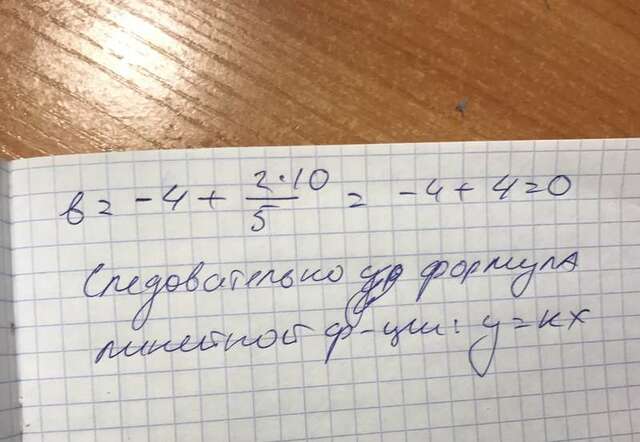 в = -4 + \frac{2·10}{5} = -4 + 4 = 0
Следовательно формула
линейной ф-ции: y = кх